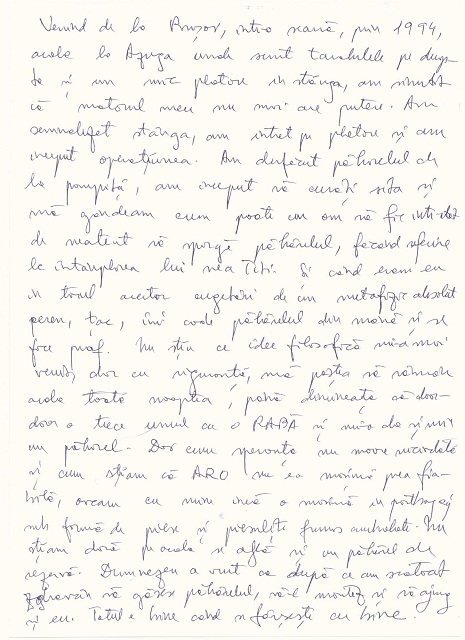 Venind de la Brașov, într-o seară, prin 1994,
acolo la Azuga unde sunt tarabele pe dreap-
ta și un mic platou in stânga, am simțit
că motorul meu nu mai are putere. Am
semnalizat stânga, am intrat pe platou și am
inceput operațiunea. Am desfăcut păhărelul de
la pompiță, am inceput să curăț sita și
mă gândeam cum poate un om să fie intr-atât
de neatent să spargă păhărelul, făcând referire
la întâmplarea lui nea Titi. Și când eram eu
in toiul acestor cugetări de un metafizic absolut
peren, țac, îmi cade păhărelul din mână și se
face praf. Nu știu ce idee filosofică mi-a mai
venit, dar cu siguranță, mă puteam să rămân
acolo toată noaptea, până dimineața că doar-
doar o trece unul cu o RABĂ și mi-o da și mie
un păhărel. Dar cum speranța nu moare niciodată
și cum știam că ARO nu e o mașină prea fia-
bilă, aveam cu mine încă o mașină in portbagaj
sub formă de piese și piesulițe frumos ambalate. Nu
știam dacă pe acolo se află și un păhărel de
rezervă. Dumnezeu a vrut ca după ce am scotocit
zdravăn să găsesc păhărelul, să-l montez și să ajung
și eu. Totul e bine când se sfârșește cu bine.